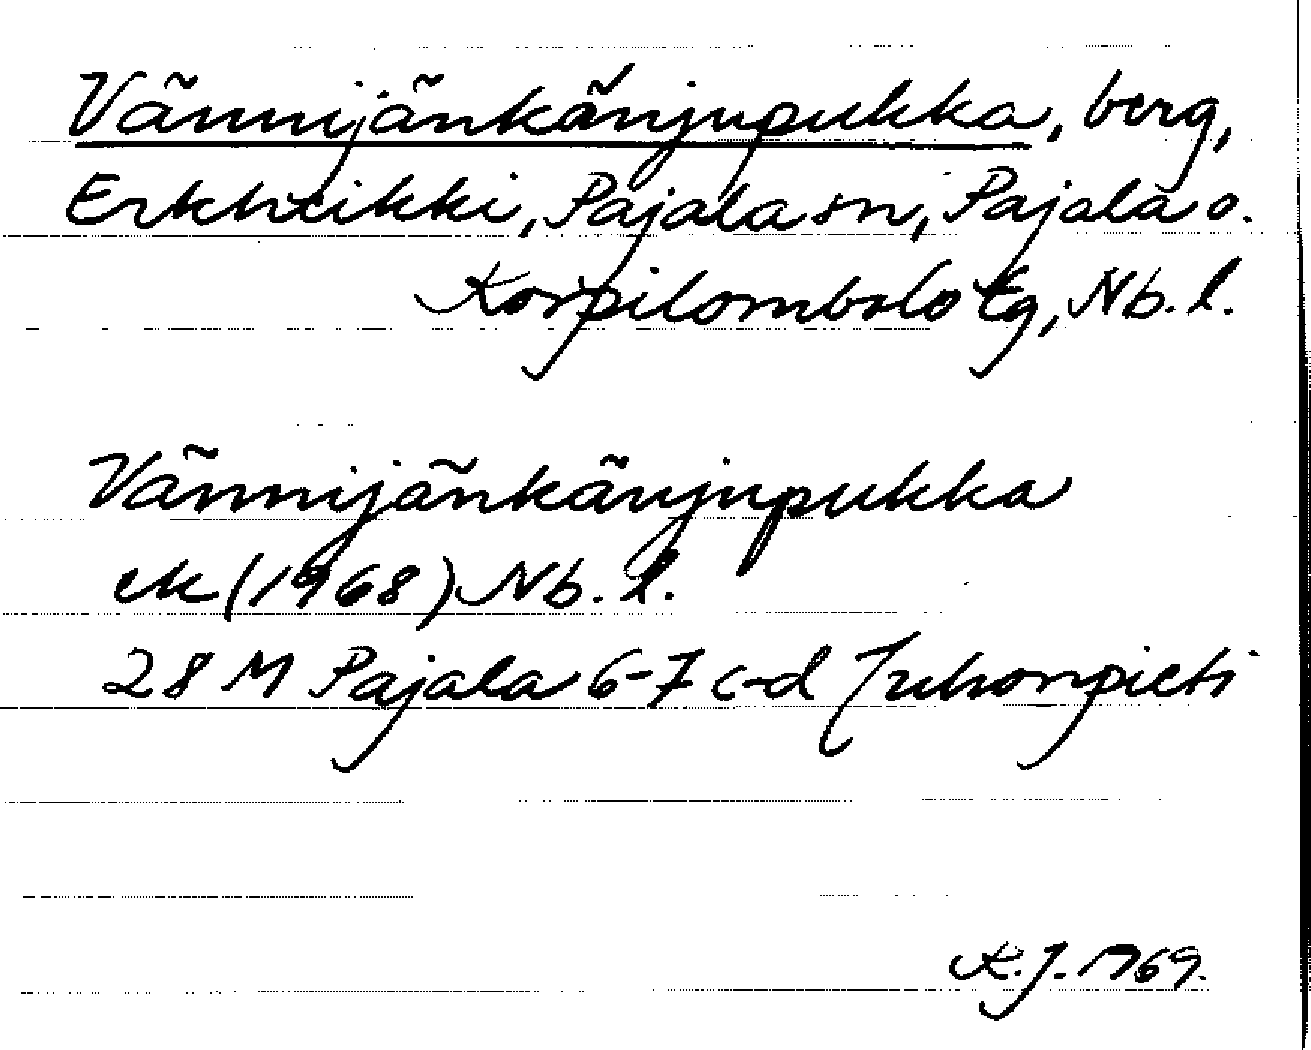 Vännijänkänjupukka, berg,
Erkheikki, Pajala sn, Pajala o.
Korpilombolo tg, Nb. l.
Vännijänkänjupukka
ek (1968) Nb. l.
28 M Pajala 6-7 c-d Juhonpieti
K.J. 1969.